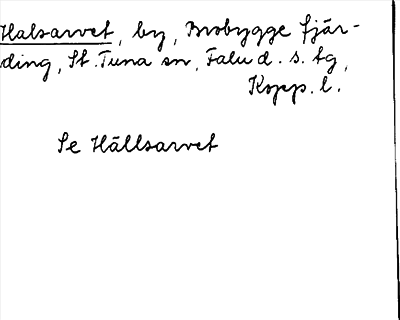 Halsarvet, by, Brobygge fjär-
ding, St. Tuna sn, Falu d. s. tg,
Kopp. l.
Se Hällsarvet